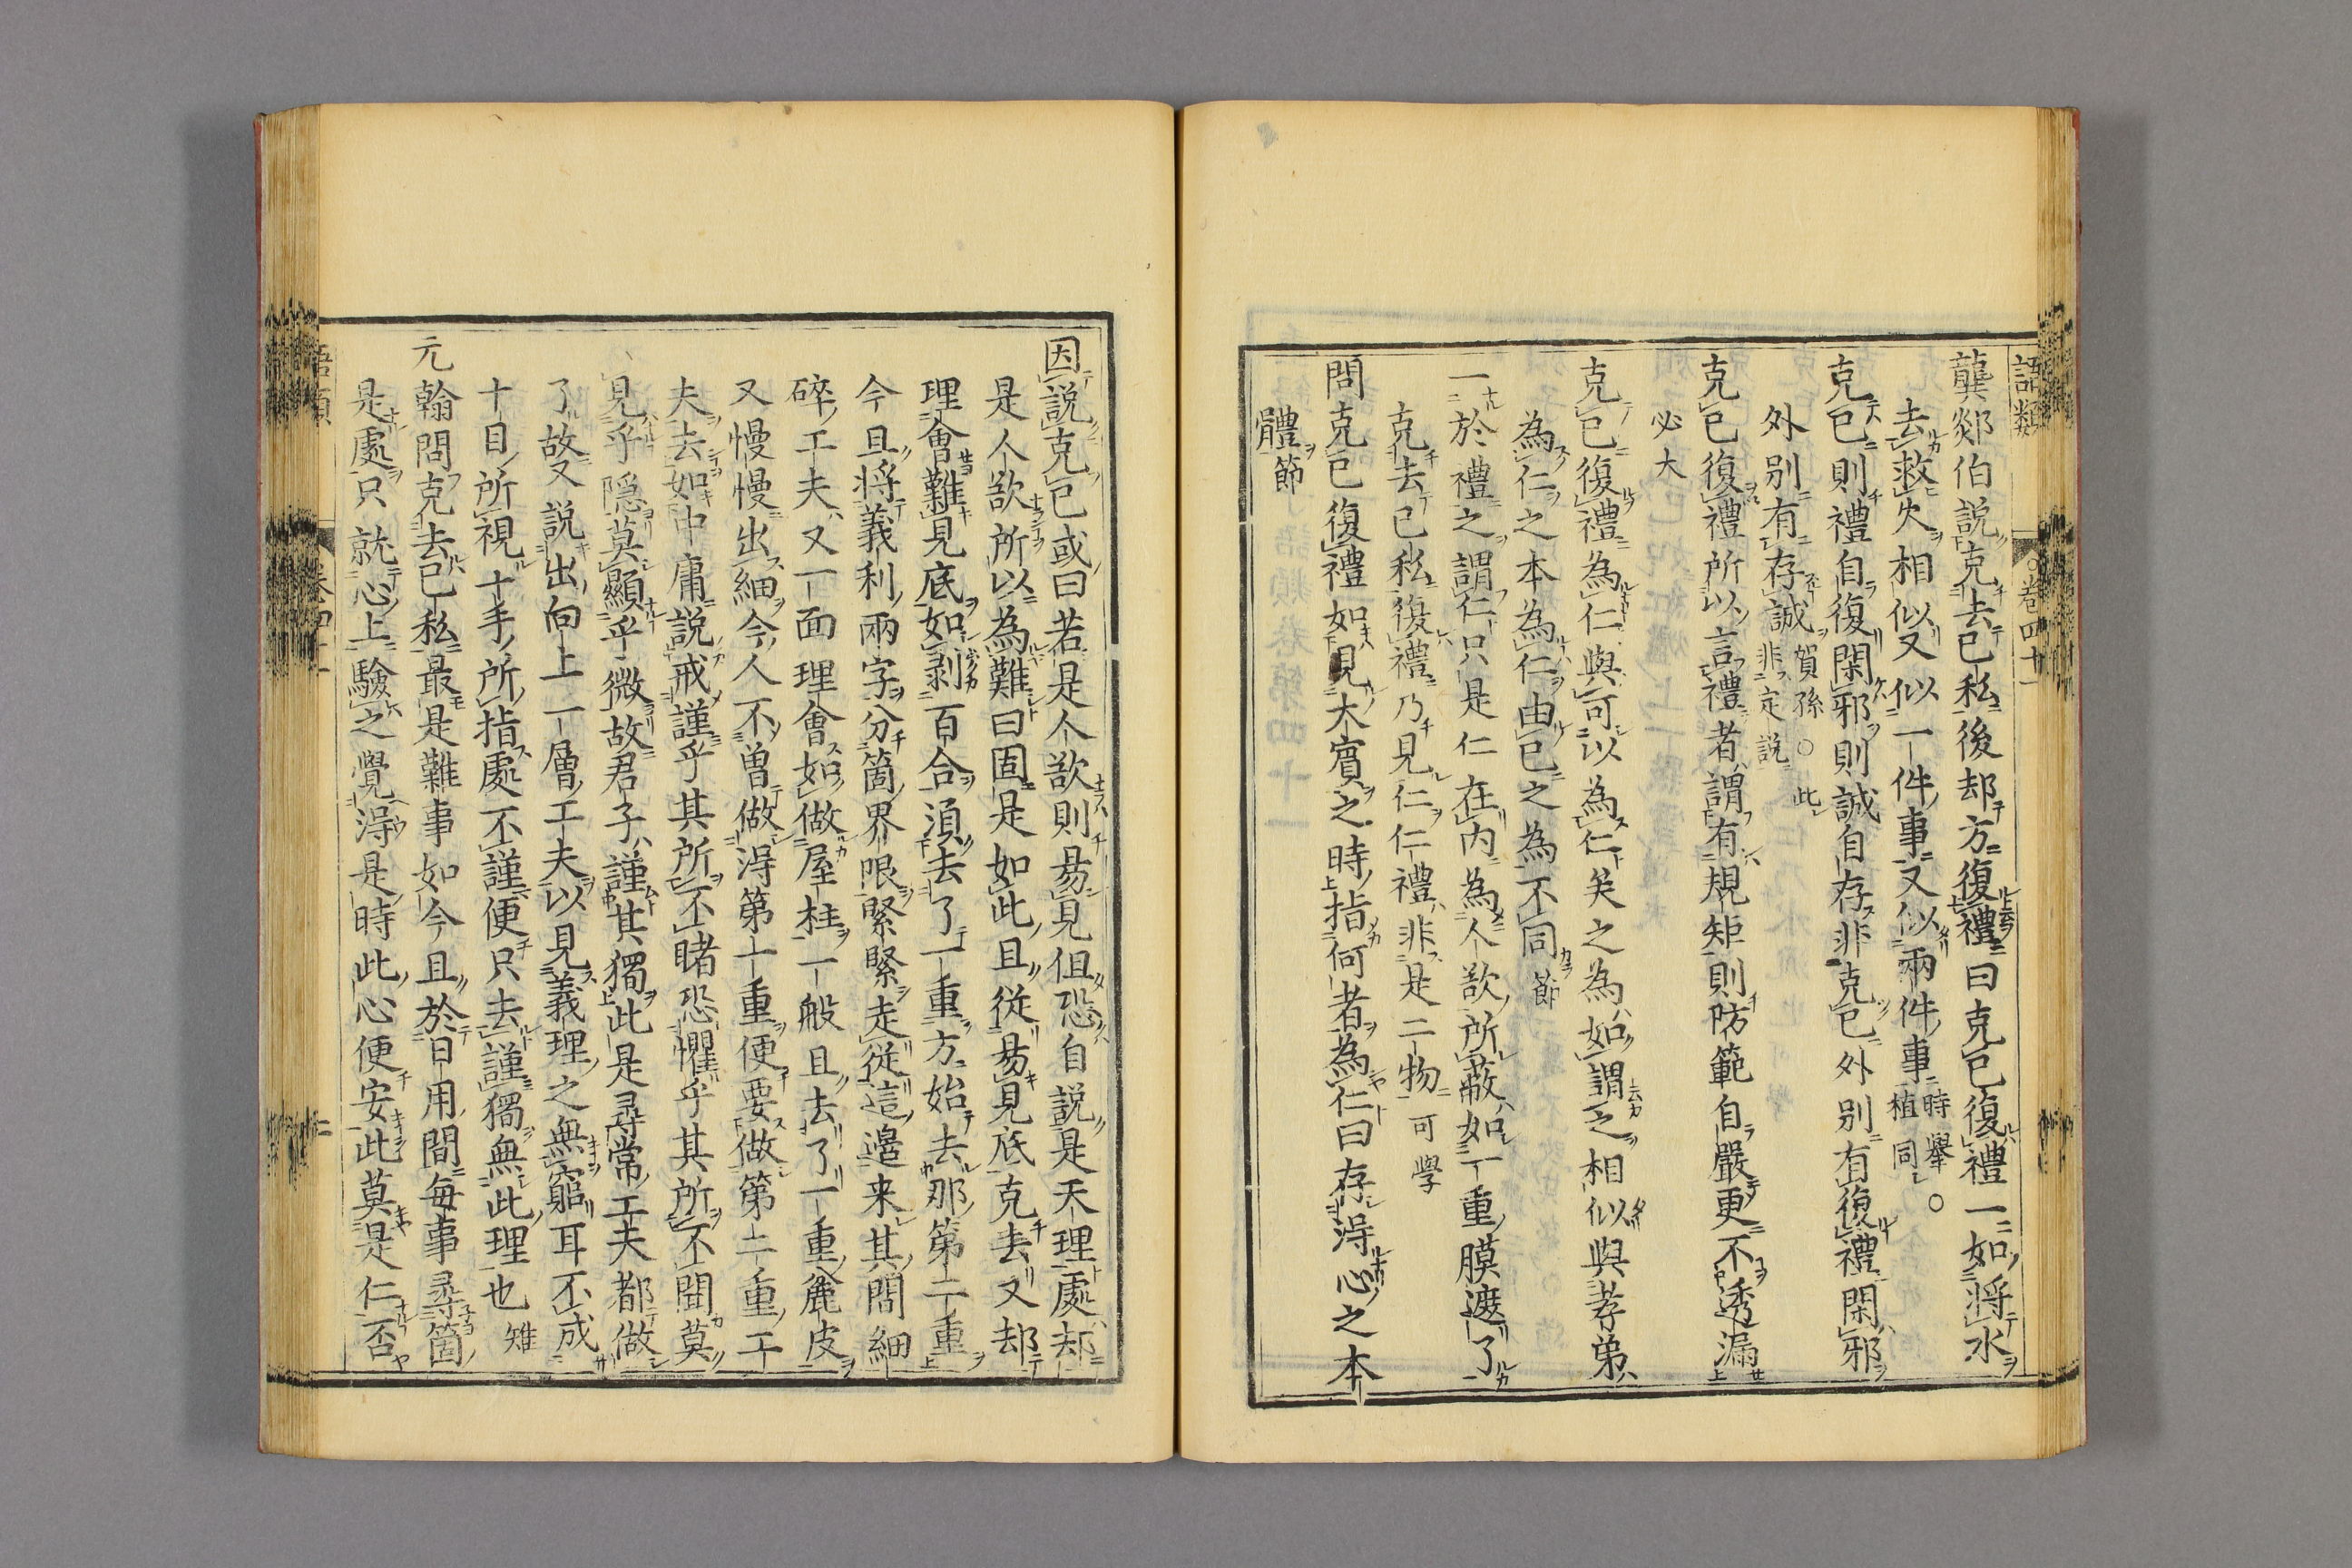 語類　○卷四十一
龔郯伯說克去己私後却方復禮曰克己復禮一如將水
去救火相似又似一件事又似兩件事時舉○植同
克己則禮自復閑邪則誠自存非克己外別有復禮閑邪
外別有存誠賀孫○此非定説
克己復禮所以言禮者謂有規矩則防範自嚴更不透漏
必大
克己復禮為仁與可以為仁矣之為如謂之相似與孝弟
為仁之本為仁由己之為不同節
一於禮之謂仁只是仁在內為人欲所蔽如一重膜遮了
克去己私復禮乃見仁仁禮非是二物可學
問克己復禮如見大賓之時指何者為仁曰存得心之本
體節
因說克己或曰若是人欲則易見但恐自說是天理處却
是人欲所以為難曰固是如此且從易見底克去又却
理會難見底如剥百合湏去了一重方始去那第二重
今且將義利兩字分箇界限緊緊走從這邉来其間細
碎工夫又一面理會如做屋柱一般且去了一重麄皮
又慢慢出細今人不曽做得第一重便要做第二重工
夫去如中庸説戒謹乎其所不睹恐懼乎其所不聞莫
見乎隱莫顯乎微故君子謹其獨此是尋常工夫都做
了故又説出向上一層工夫以見義理之無窮耳不成
十目所視十手所指處不謹便只去謹獨無此理也雉
元翰問克去己私最是難事如今且於日用間每事尋箇
是處只就心上驗之覺得是時此心便安此莫是仁否
語類　卷四十一　二